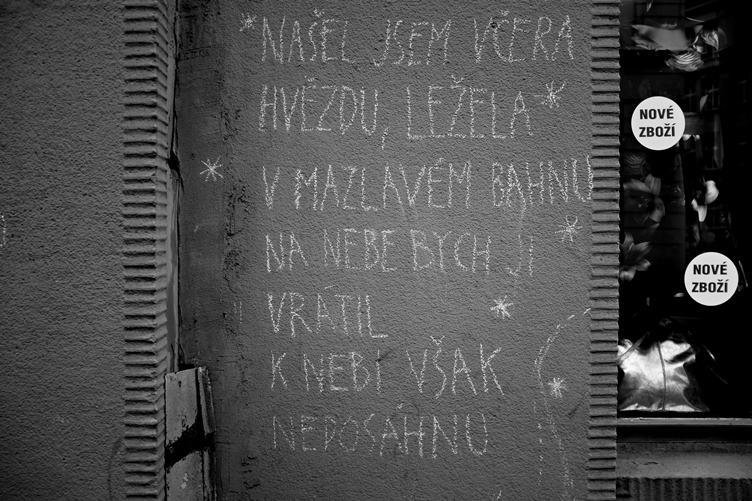 NAŠEL JSEM VČERA
HVĚZDU, LEŽELA
V MAZLAVÉM BAHNU
NA NEBE BYCH JI
VRÁTIL
K NEBI VŠAK
NEDOSÁHNU
NOVÉ
ZBOŽÍ
NOVÉ
ZBOŽÍ